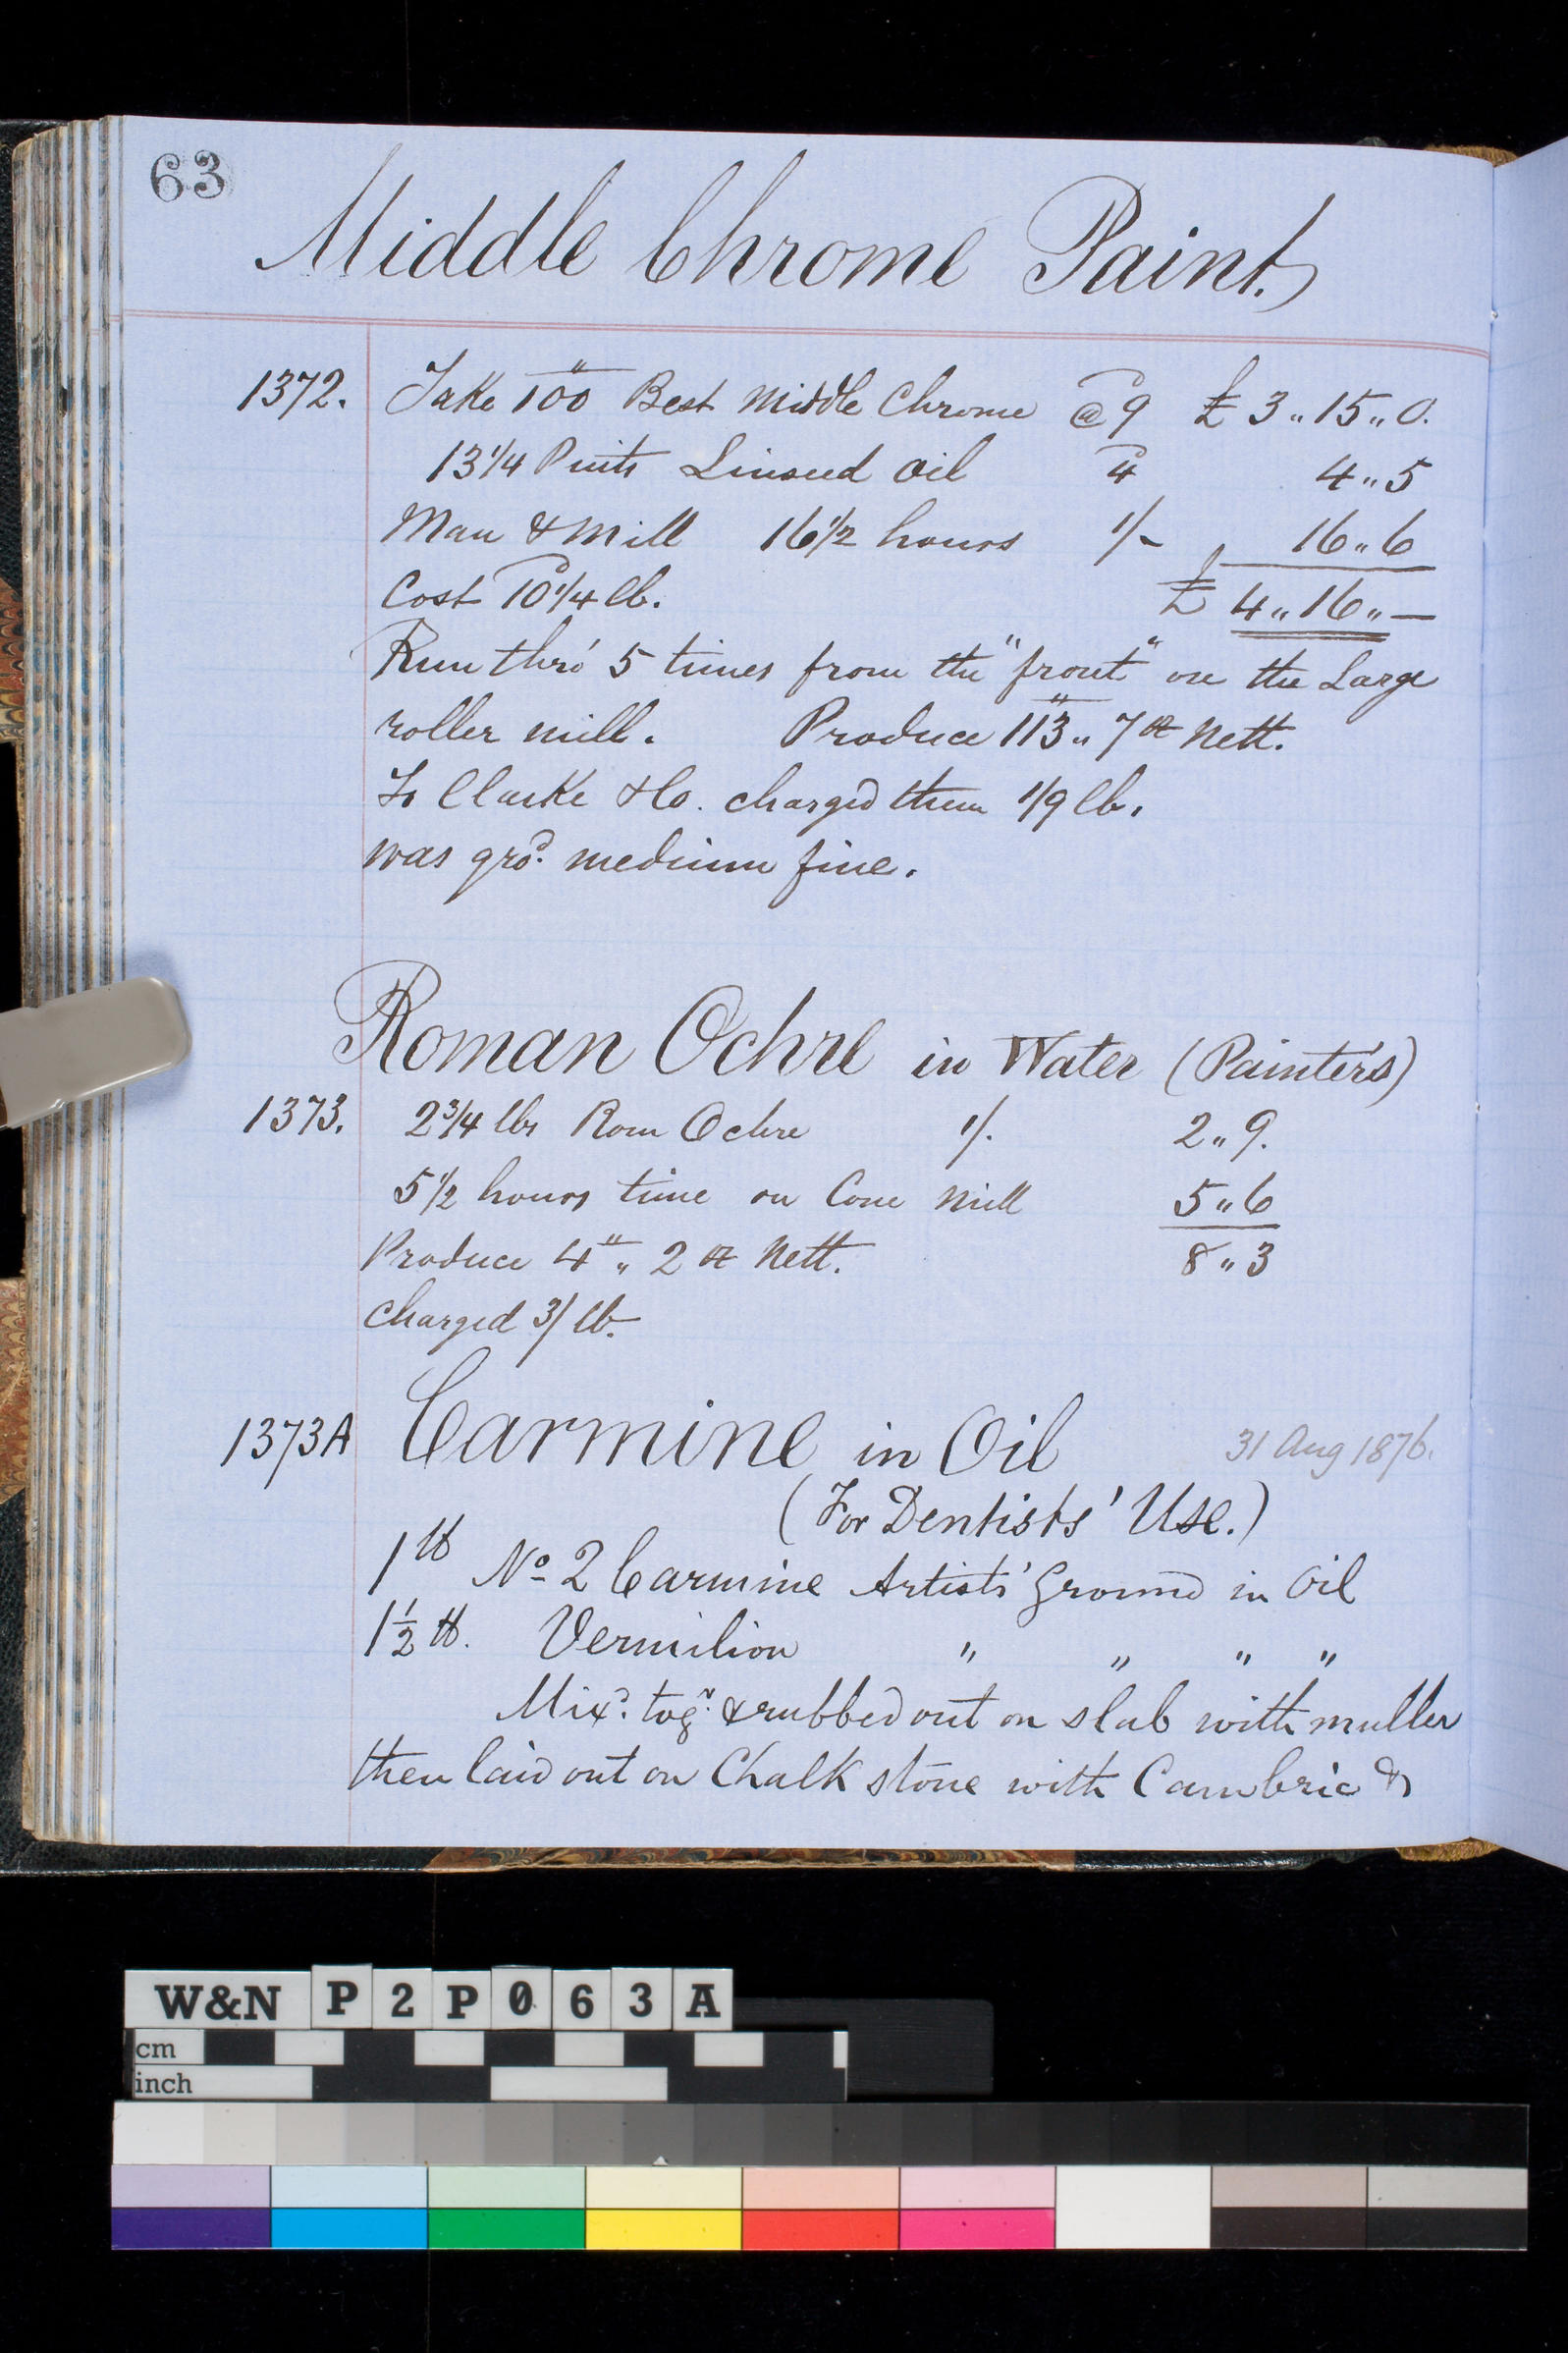 63
Middle Chrome Paint.
1372. Take 100 " Best Middle Chrome @ 9 £ 3 „ 15 „ 0.
13 1/4 Pints Linseed Oil 4 4 „ 5
Man & Mill 16 1/2 hours 1/- 16 „ 6
Cost 10 1/4 lb. £ 4 „ 16 „ —
Run thro' 5 times from the "front" on the Large
roller mill. Produce 113 „ 7 oz Nett.
To Clarke & Co. charged them 1/9 lb.
was gro'd. medium fine.
Roman Ochre in Water (Painter's)
1373. 2 3/4 lbs Rom Ochre 1/. 2 „ 9.
5 1/2 hours time on Cone Mill 5 „ 6
Produce 4 " „ 2 oz Nett. 8 „ 3
charged 3/ lb.
1373A Carmine in Oil 31 Aug 1876.
(For Dentists' Use.)
1 lb No 2 Carmine Artists' Ground in Oil
1 1/2 lb. Vermilion " " " "
Mixd. togr. & rubbed out on slab with muller
then laid out on Chalk stone with Cambric &
W&N P2P063A
cm
inch